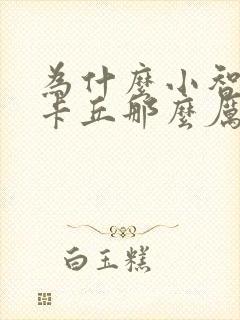 為什麼小智
卡丘那麼厲
白玉糕